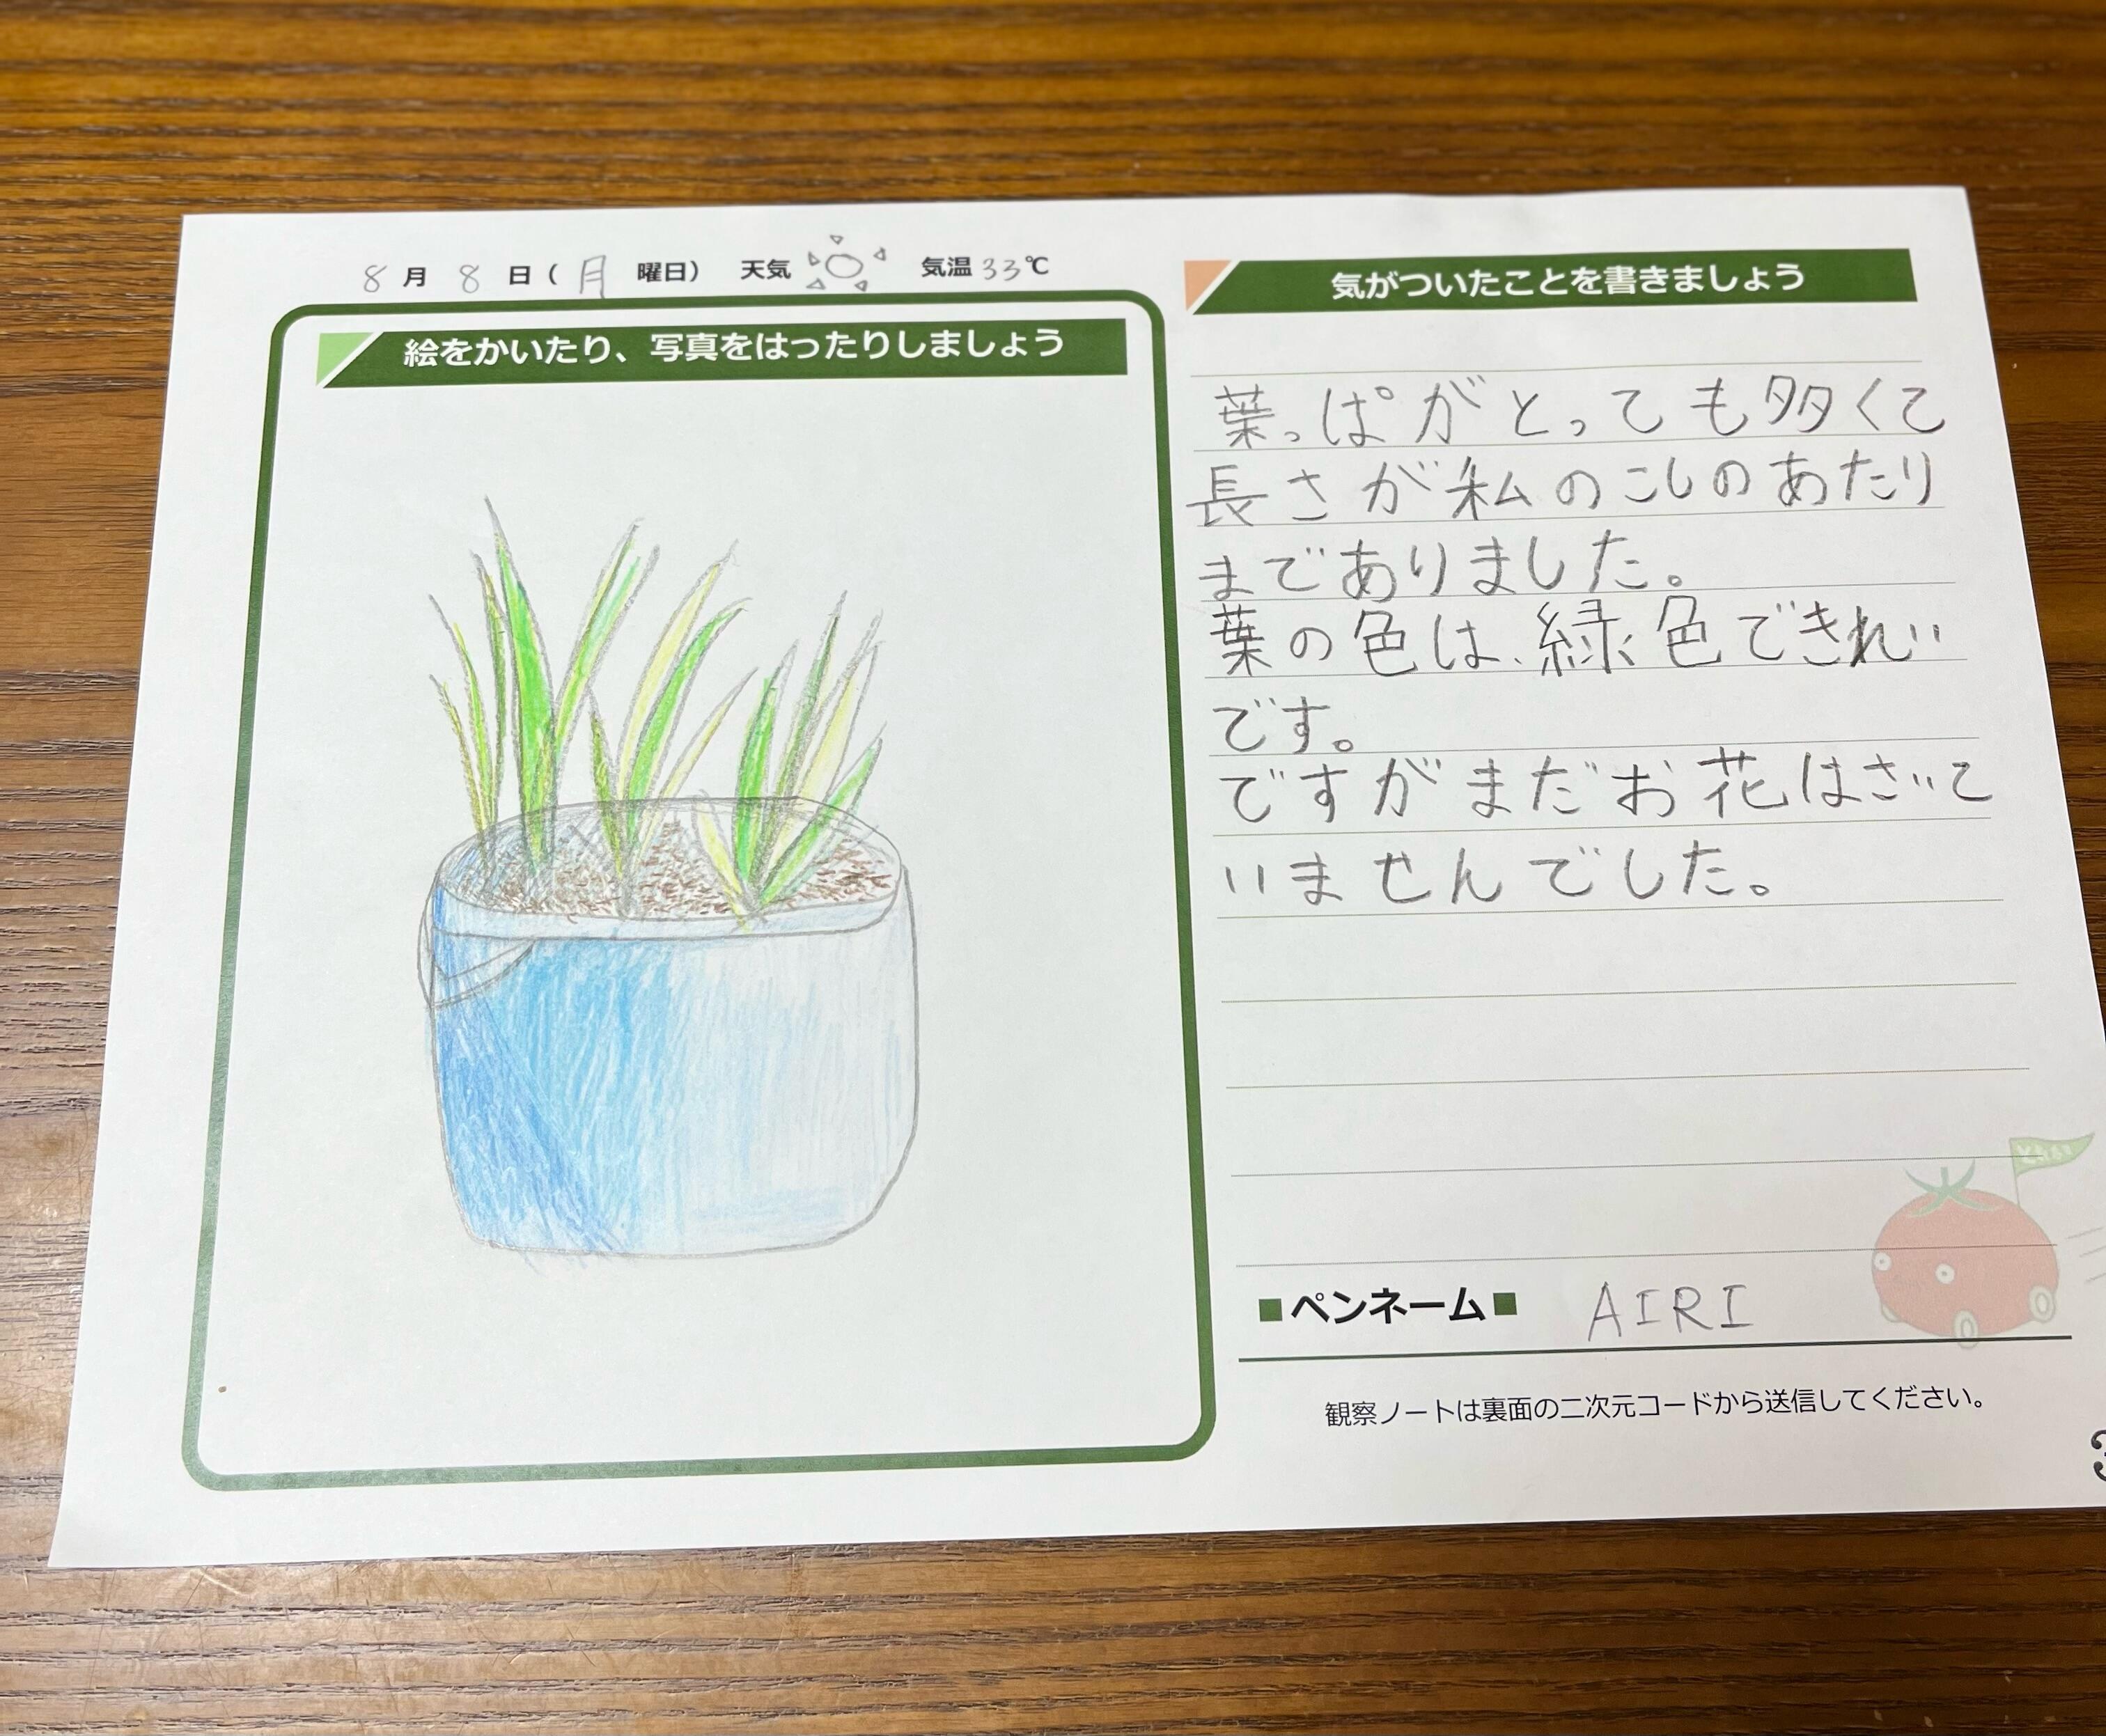 8月8日(月曜日) 天気 気温33℃
絵をかいたり、写真をはったりしましょう
気がついたことを書きましょう
葉っぱがとっても多くて
長さが私のこしのあたり
までありました。
葉の色は、緑色できれい
です。
ですがまだお花はさいて
いませんでした。
■ペンネーム■ AIRI
観察ノートは裏面の二次元コードから送信してください。
3